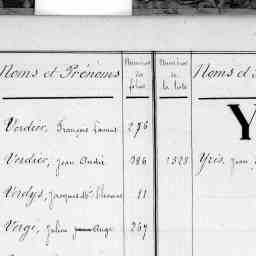 Noms et Prénoms
Numéros
du
folio
Numéros
de
la liste
Noms et
Y
Verdier, François Camus 276
Verdier, Jean André 386
1323 Yris, Jean,
Verdys, Jacques 11
Vergé, Julien Ange 267